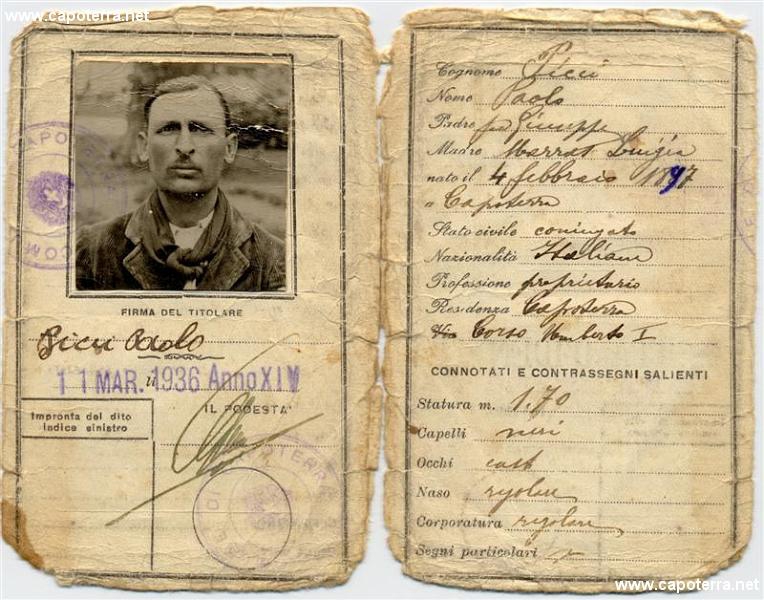 www.capoterra.net
www.capoterra.net
FIRMA DEL TITOLARE
Picci Paolo
11 MAR. 1936 Anno XIV
IL PODESTA'
Impronta del dito
indice sinistro
CAPOTERRA
COM
Cognome Picci
Nome Paolo
Padre fu Giuseppe
Madre Marras Luigia
nato il 4 febbraio 1897
a Capoterra
Stato civile coniugato
Nazionalità Italiana
Professione proprietario
Residenza Capoterra
Via Corso Umberto I
CONNOTATI E CONTRASSEGNI SALIENTI
Statura m. 1.70
Capelli neri
Occhi cast
Naso regolare
Corporatura regolare
Segni particolari
www.capoterra.net